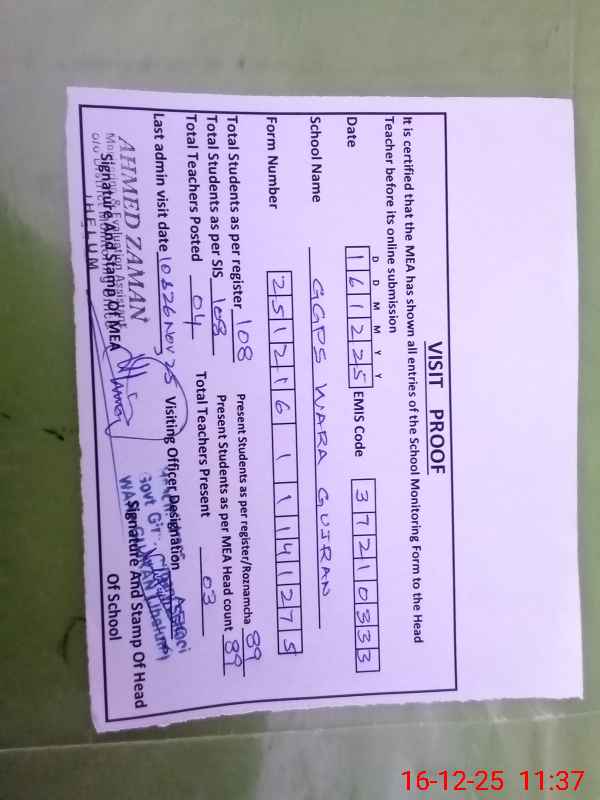 VISIT PROOF
It is certified that the MEA has shown all entries of the School Monitoring Form to the Head
Teacher before its online submission
D D M M Y Y
Date 1 6 1 2 2 5 EMIS Code 3 7 2 1 0 3 3 3
School Name GGPS WARA GUJRAN
Form Number 2 5 1 2 1 6 1 1 1 4 1 2 7 5
Total Students as per register 108 Present Students as per register/Roznamcha 89
Total Students as per SIS 108 Present Students as per MEA Head count 89
Total Teachers Posted 04 Total Teachers Present 03
Last admin visit date 10 & 26 Nov 25 Visiting Officer Designation
AHMED ZAMAN
Monitoring & Evaluation Assistant
Signature And Stamp Of MEA
JHELUM
Govt Girls
Signature And Stamp Of Head
Of School
16-12-25 11:37